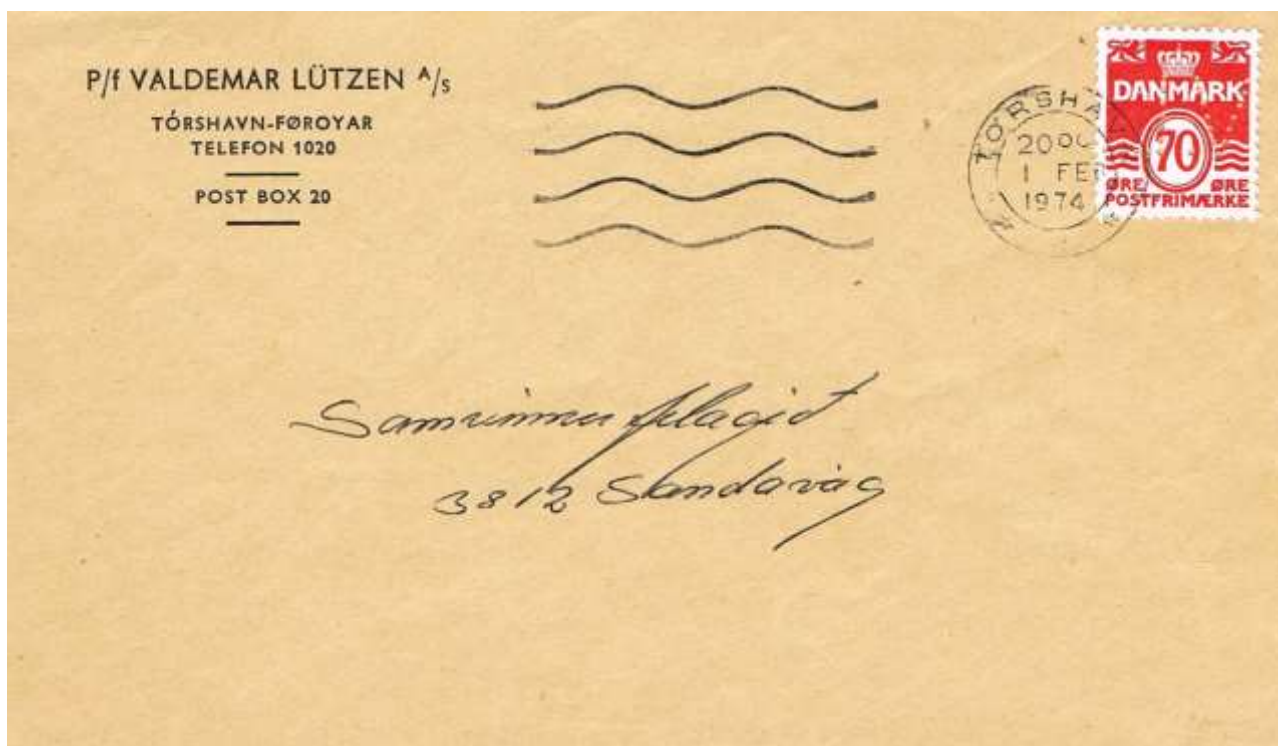 P/f VALDEMAR LÜTZEN A/s
TÓRSHAVN-FØROYAR
TELEFON 1020
POST BOX 20
TÓRSHA
2000
1 FEB
1974
DANMARK
70
ØRE ØRE
POSTFRIMÆRKE
Samvinnufelagið
3812 Sandavág